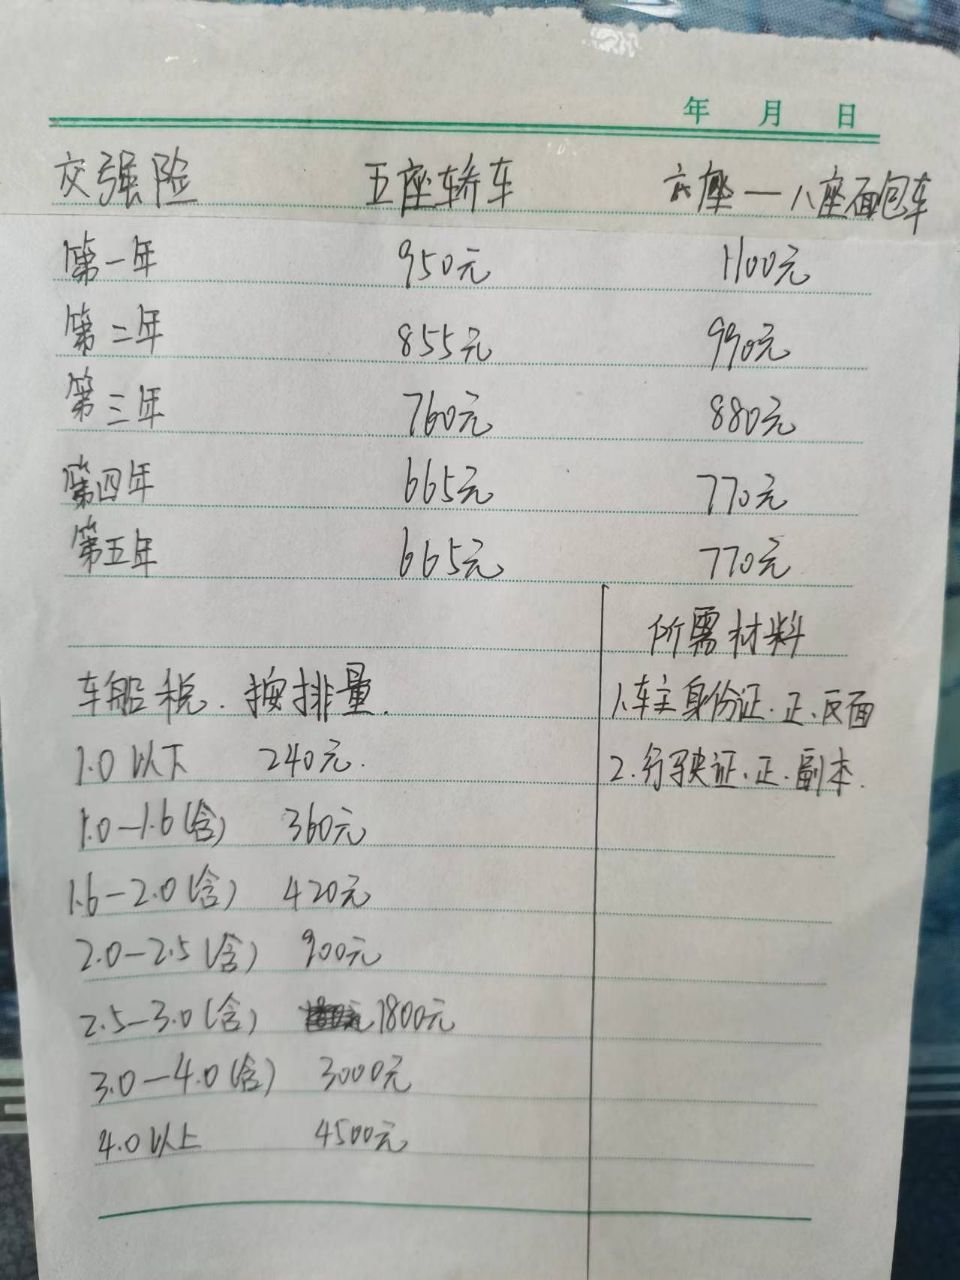 年 月 日
交强险 五座轿车 六座—八座面包车
第一年 950元 1100元
第二年 855元 990元
第三年 760元 880元
第四年 665元 770元
第五年 665元 770元
所需材料
车船税.按排量. 1.车主身份证.正.反面
1.0以下 240元. 2.行驶证.正.副本.
1.0—1.6(含) 360元
1.6—2.0(含) 420元
2.0—2.5(含) 900元
2.5—3.0(含) 1800元
3.0—4.0(含) 3000元
4.0以上 4500元